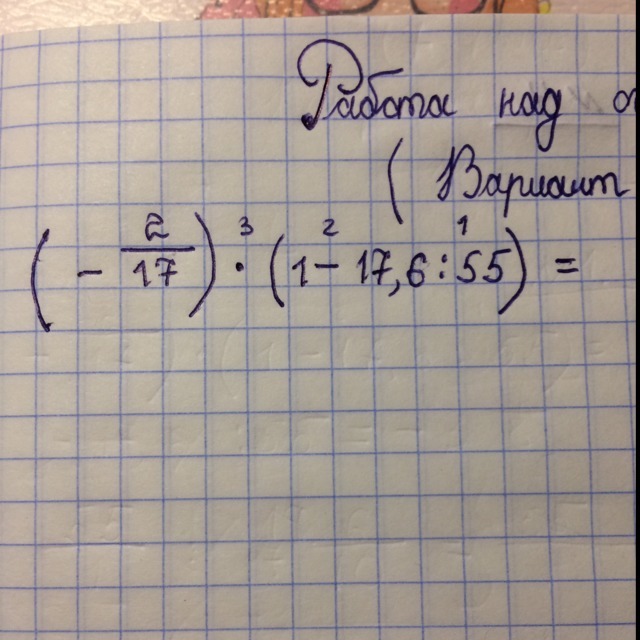 Работа над
(Вариант
(- 2/17) ·³ (1 -² 17,6 :¹ 55) =